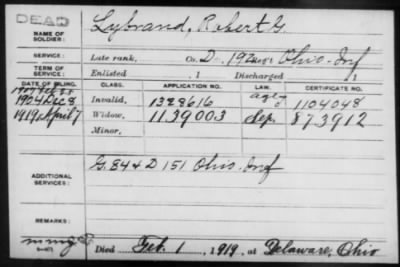 DEAD
NAME OF SOLDIER: Lybrand, Robert G.
SERVICE: Late rank, Co. D. 192 Ohio Inf
TERM OF SERVICE: Enlisted , 1 Discharged , 1
DATE OF FILING. CLASS. APPLICATION NO. LAW. CERTIFICATE NO.
1904 Dec 8 Invalid, 1328616 1104048
1919 April 7 Widow, 1139003 dep. 873912
Minor,
ADDITIONAL SERVICES: G. 84 & D 151 Ohio Inf
REMARKS:
Died Feb. 1, 1919, at Delaware, Ohio